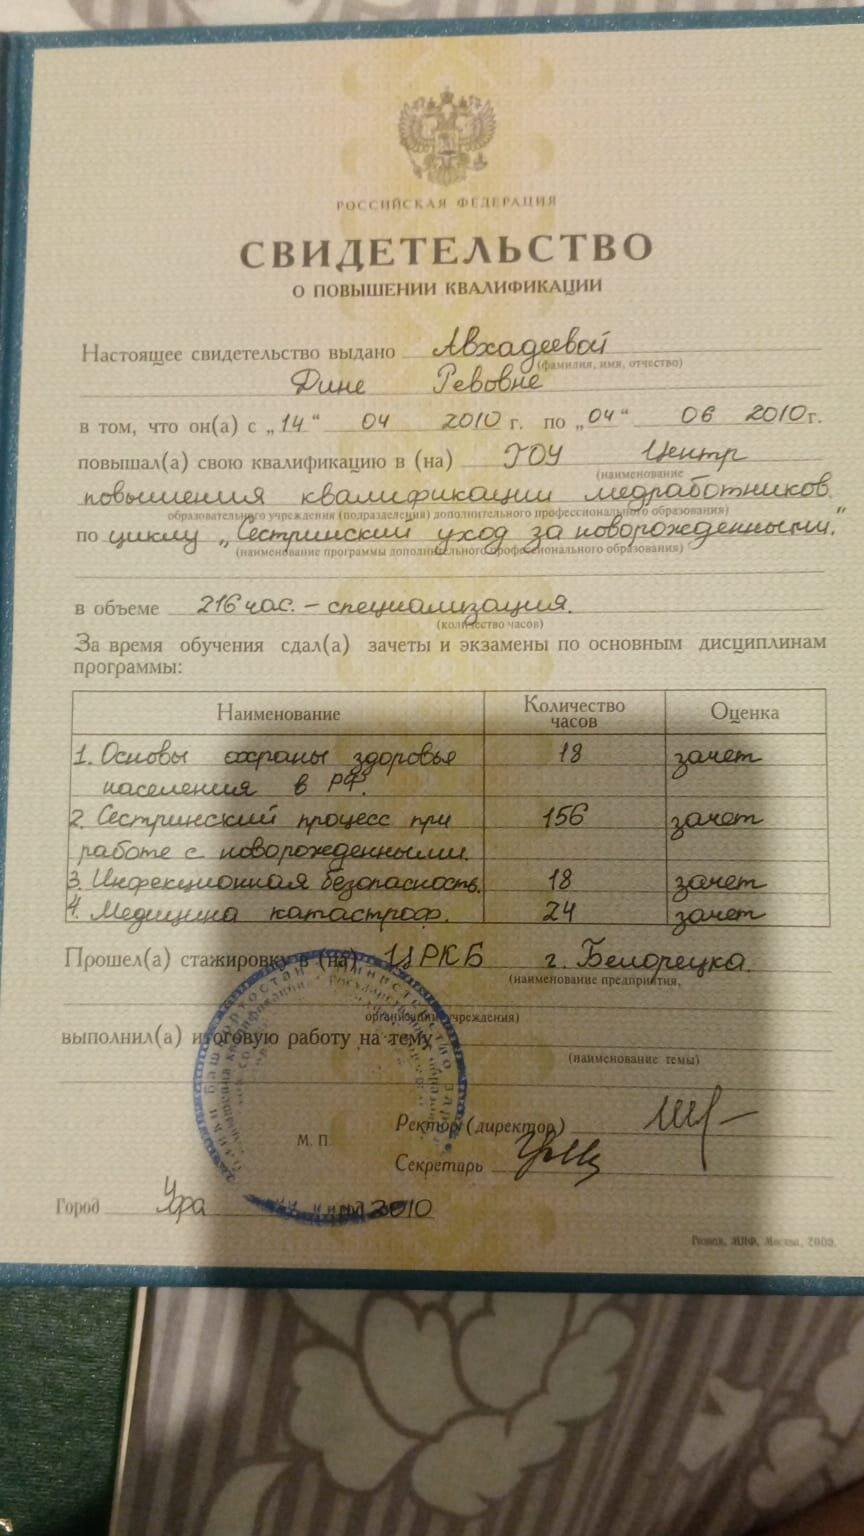 РОССИЙСКАЯ ФЕДЕРАЦИЯ
СВИДЕТЕЛЬСТВО
О ПОВЫШЕНИИ КВАЛИФИКАЦИИ
Настоящее свидетельство выдано Авхадеевой
(фамилия, имя, отчество)
Дине Ревовне
в том, что он(а) с „14“ 04 2010 г. по „04“ 06 2010 г.
повышал(а) свою квалификацию в (на) ГОУ Центр
(наименование
повышения квалификации медработников
образовательного учреждения (подразделения) дополнительного профессионального образования)
по циклу „Сестринский уход за новорожденными.“
(наименование программы дополнительного профессионального образования)
в объеме 216 час. – специализация.
(количество часов)
За время обучения сдал(а) зачеты и экзамены по основным дисциплинам
программы:
Наименование Количество часов Оценка
1. Основы охраны здоровья 18 зачет
населения в РФ.
2. Сестринский процесс при 156 зачет
работе с новорожденными.
3. Инфекционная безопасность. 18 зачет
4. Медицина катастроф. 24 зачет
Прошел(а) стажировку в (на) ЦРКБ г. Белорецка.
(наименование предприятия,
организации, учреждения)
выполнил(а) итоговую работу на тему
(наименование темы)
Ректор (директор)
М. П.
Секретарь
Город Уфа год 2010